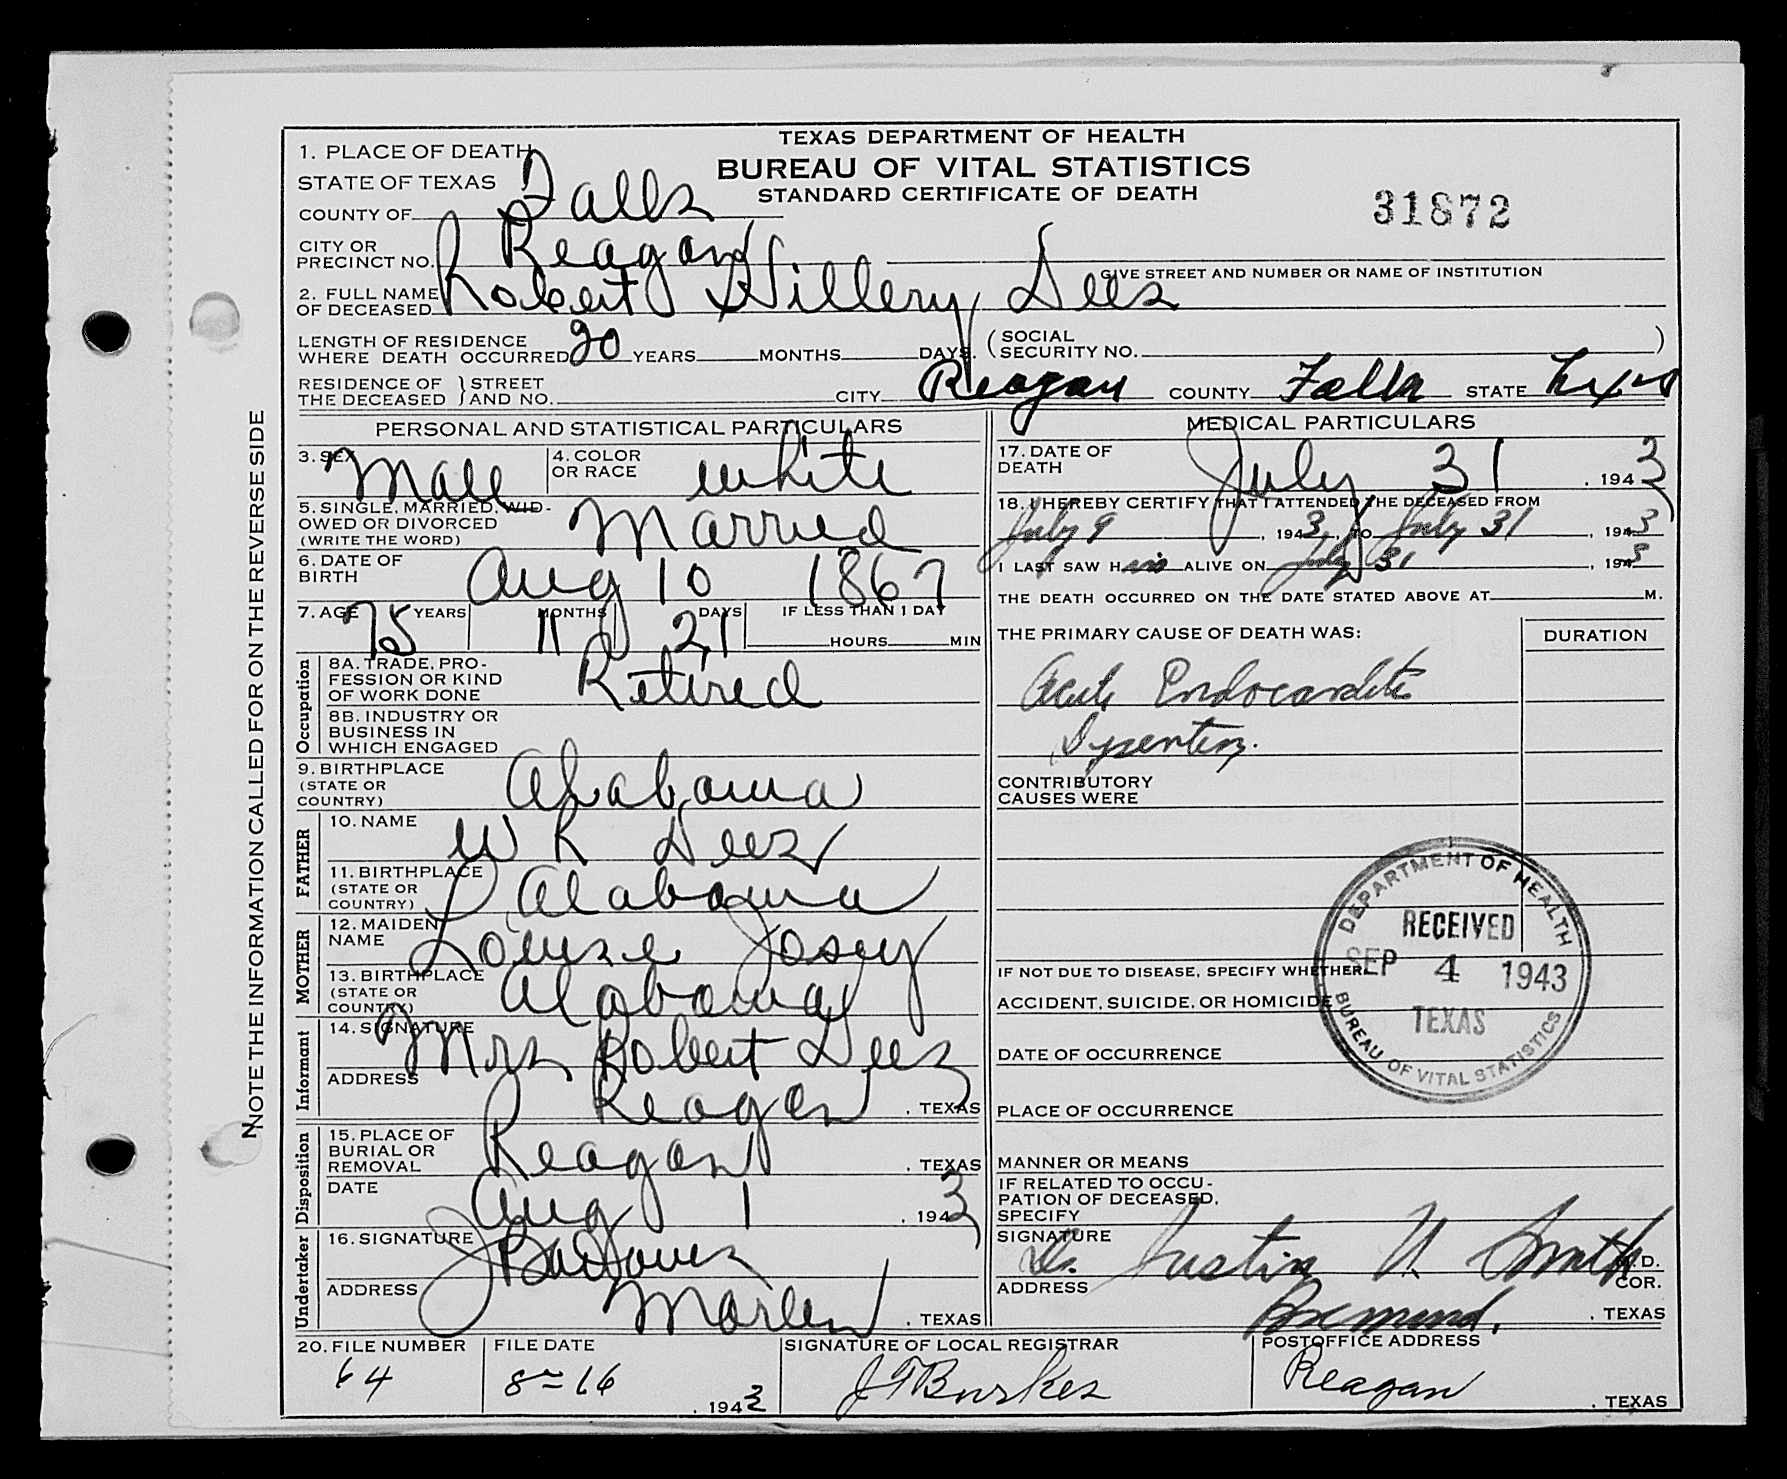 TEXAS DEPARTMENT OF HEALTH
BUREAU OF VITAL STATISTICS
STANDARD CERTIFICATE OF DEATH
31872
1. PLACE OF DEATH
STATE OF TEXAS
COUNTY OF Falls
CITY OR PRECINCT NO. Reagan
GIVE STREET AND NUMBER OR NAME OF INSTITUTION
2. FULL NAME OF DECEASED Robert Hillery Dees
LENGTH OF RESIDENCE WHERE DEATH OCCURRED 20 YEARS MONTHS DAYS. (SOCIAL SECURITY NO. )
RESIDENCE OF THE DECEASED } STREET AND NO. CITY Reagan COUNTY Falls STATE Texas
NOTE THE INFORMATION CALLED FOR ON THE REVERSE SIDE
PERSONAL AND STATISTICAL PARTICULARS
3. SEX Male
4. COLOR OR RACE white
5. SINGLE, MARRIED, WIDOWED OR DIVORCED (WRITE THE WORD) Married
6. DATE OF BIRTH Aug 10 1867
7. AGE 75 YEARS 11 MONTHS 21 DAYS IF LESS THAN 1 DAY HOURS MIN
Occupation
8A. TRADE, PROFESSION OR KIND OF WORK DONE Retired
8B. INDUSTRY OR BUSINESS IN WHICH ENGAGED
9. BIRTHPLACE (STATE OR COUNTRY) Alabama
FATHER
10. NAME W R Dees
11. BIRTHPLACE (STATE OR COUNTRY) Alabama
MOTHER
12. MAIDEN NAME Louise Josey
13. BIRTHPLACE (STATE OR COUNTRY) Alabama
Informant
14. SIGNATURE Mrs Robert Dees
ADDRESS Reagan , TEXAS
Disposition
15. PLACE OF BURIAL OR REMOVAL Reagan , TEXAS
DATE Aug 1 , 1943
Undertaker
16. SIGNATURE
ADDRESS Marlin , TEXAS
MEDICAL PARTICULARS
17. DATE OF DEATH July 31 , 1943
18. I HEREBY CERTIFY THAT I ATTENDED THE DECEASED FROM
July 9 , 1943, TO July 31 , 1943
I LAST SAW H im ALIVE ON July 31 , 1943
THE DEATH OCCURRED ON THE DATE STATED ABOVE AT M.
THE PRIMARY CAUSE OF DEATH WAS: DURATION
Acute Endocarditis
Dysentery.
CONTRIBUTORY CAUSES WERE
IF NOT DUE TO DISEASE, SPECIFY WHETHER
ACCIDENT, SUICIDE, OR HOMICIDE
DATE OF OCCURRENCE
PLACE OF OCCURRENCE
MANNER OR MEANS
IF RELATED TO OCCUPATION OF DECEASED, SPECIFY
SIGNATURE Dr. Justin N. Smith M.D. COR.
ADDRESS , TEXAS
DEPARTMENT OF HEALTH
RECEIVED
SEP 4 1943
TEXAS
BUREAU OF VITAL STATISTICS
20. FILE NUMBER 64
FILE DATE 8-16 , 1943
SIGNATURE OF LOCAL REGISTRAR
POSTOFFICE ADDRESS Reagan , TEXAS